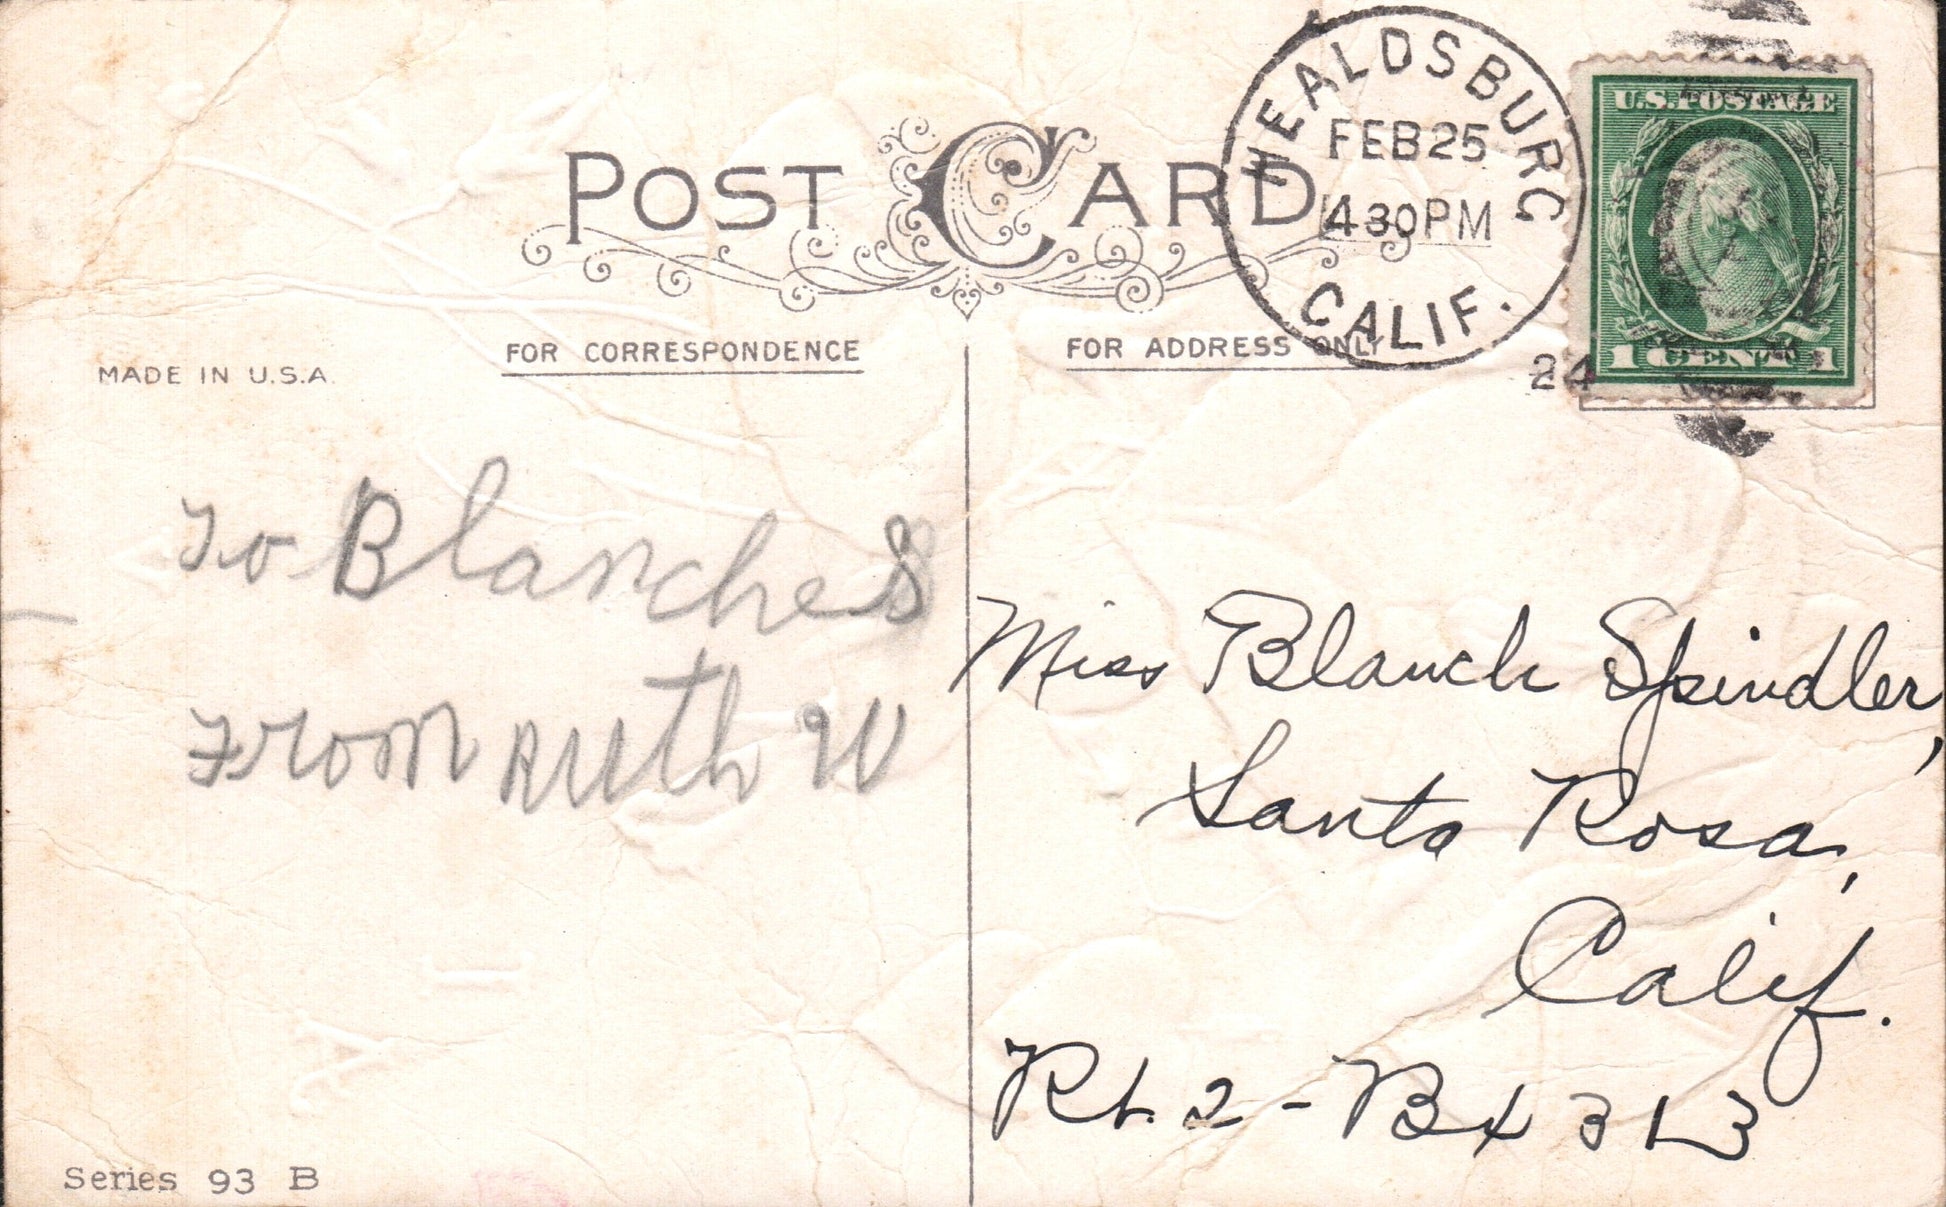 POST CARD
HEALDSBURG
FEB 25
4 30 PM
CALIF.
U.S. POSTAGE
1 CENT 1
24
MADE IN U.S.A.
FOR CORRESPONDENCE
FOR ADDRESS ONLY
To Blanche S
From Ruth W
Miss Blanch Spindler,
Santa Rosa,
Calif.
Rt. 2 - Bx 313
Series 93 B